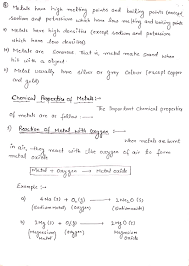 ⑧ Metals have high melting points and boiling points (except
sodium and potassium which have low melting and boiling points
9) Metals have high densities (except sodium and potassium
which have low densities)
10) Metals are Sonorous that is, metal make sound when
hit with a object
Metal usually have silver or grey Colour (except copper
and gold)
Chemical Properties of Metals:-
The Important Chemical properties
of metals are as follow :-
1) Reaction of Metal with oxygen
When metals are burnt
in air, they react with the oxygen of air to form
metal oxide
Metal + Oxygen → Metal oxide
Example :-
a) 4Na(s) + O₂(g) → 2Na₂O(s)
(Sodium metal) (Oxygen) (Sodium oxide)
2Mg(s) + O₂(g) → 2MgO(s)
(Magnesium) (Oxygen) Magnesium
(metal) Oxide